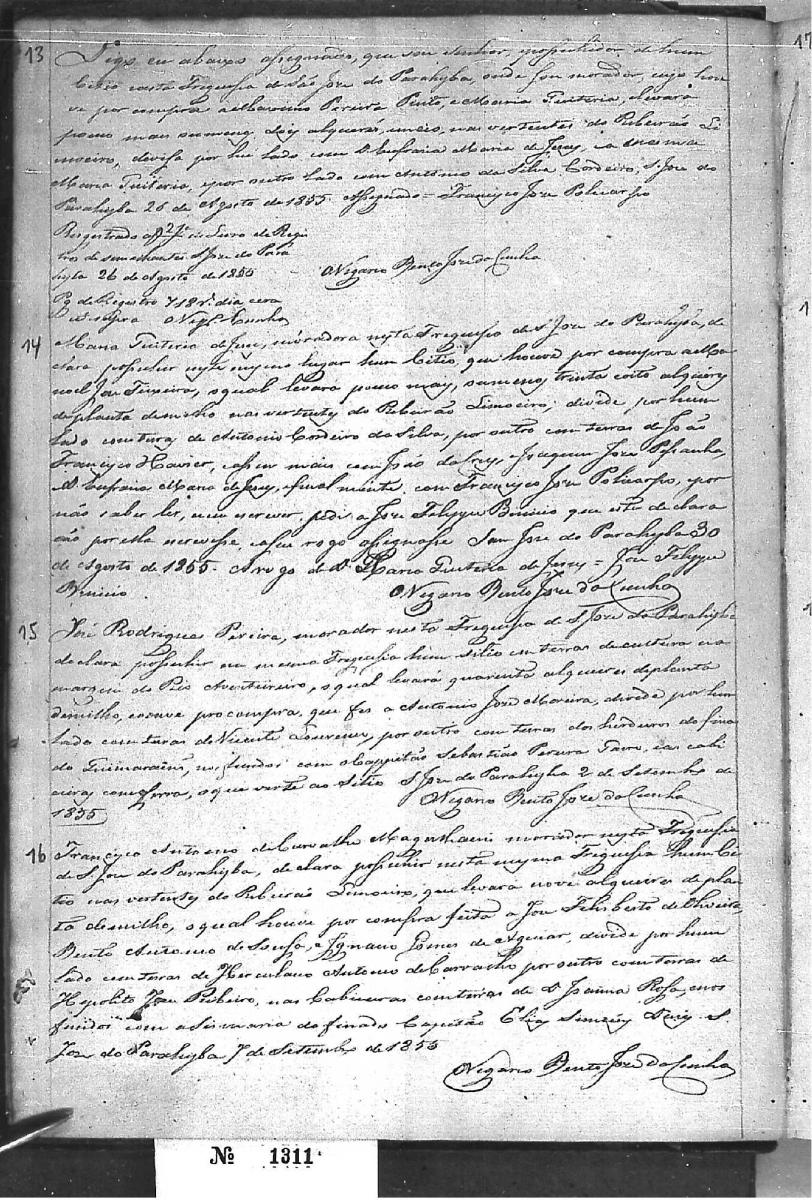 13
Digo eu abaixo assignado, que sou Senhor, e possuhidor de hum
Citio nesta Freguesia de São Jose do Parahyba, onde sou morador, cujo hou
ve por compra a Marianno Pereira Pinto, e Maria Quiteria, e levará
pouco mais ou menos dois alqueres, e meio, nas vertentes do Ribeirão Li
moeiro, devisa por hu lado com D. Eufrasia Maria de Jesus, e a mesma
Maria Quiteria, e por outro lado com Antonio da Silva Cordeiro, S. Jose do
Parahyba 26 de Agosto de 1855. Assignado = Francisco Jose Policarpo
Resgestrado a f 2 Livro de Regis
tros de semelhantes S. Jose do Para
hyba 26 de Agosto de 1855 O Vigario Bento Jose da Cunha
Pg de Registro 718 rs. dia era
ut supra O Vigr. Cunha
14
Maria Quiteria de Jesus, moradora nesta Freguesia de S. Jose do Parahyba, de
clara possuhir neste mesmo lugar hum Citio, que houve por compra a Ma
noel Jose Teixeira, o qual levará pouco mais, ou menos, trinta e oito alqueres
de planta de milho nas vertentes do Ribeirão Limoeiro; divide por hum
lado com terras de Antonio Cordeiro da Silva, por outro com terras de João
Francisco Xavier, e assim mais com João de Jesus, e Joaquim Jose Pessanha,
D. Eufrasia Maria de Jesus, e finalmente com Francisco Jose Policarpo, e por
não saber ler, nem escrever, pedi a Jose Felippe Benicio que este declara
cão por ella escrevesse, e a seu rogo assignasse. Sam Jose do Parahyba 30
de Agosto de 1855. A rogo de D. Maria Quiteria de Jesus = Jose Felippe
Benicio. O Vigario Bento Jose da Cunha
15
José Rodrigues Pereira, morador nesta Freguesia de S. Jose do Parahyba
declara possuhir na mesma Freguesia hum sitio em terras de cultura na
margem do Rio Aventureiro, o qual levará quarenta alqueires de planta
de milho, e ouve por compra, que fes a Antonio José Moreira, divide por hum
lado com terras de Vicente Lourenço, por outro com terras dos herdeiros do fina
do Guimaraens, nos fundos com o Cappitão Sebastião Pereira, e as cabi
ceiras com Serra, o que verte ao Sitio S. Jose do Parahyba 2 de Setembro de
1855 O Vigario Bento Jose da Cunha
16
Francisco Antonio de Carvalho Magalhaens morador nesta Freguesia
de S. Jose do Parahyba, declara possuhir nesta mesma Freguesia hum Ci
tio nas vertentes do Ribeirão Limoeiro, que levará nove alqueires de plan
ta de milho, o qual houve por compra feita a Jose Felisberto de Oliveira,
Bento Antonio de Sousa, e Ignacio Gomes de Aguiar, divide por hum
lado com terras de Herculano Antonio de Carvalho por outro com terras de
Hypolito Jose Ribeiro, nas Cabiceiras com terras de D. Joanna Rosa, e nos
fundos com a Sismaria do finado Capitão Elias Simeão S.
Jose do Parahyba 7 de Setembro de 1855
O Vigario Bento Jose da Cunha
17
1
1
No 1311